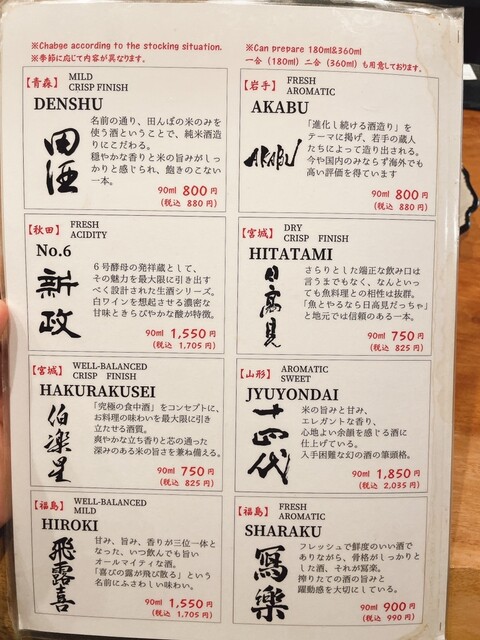 ※Chabge according to the stocking situation.
※季節に応じて内容が異なります。
※Can prepare 180ml&360ml
一合（180ml）二合（360ml）も用意しております。
【青森】
MILD
CRISP FINISH
DENSHU
田酒
名前の通り、田んぼの米のみを
使う酒ということで、純米酒造
りにこだわる。
穏やかな香りと米の旨みがしっ
かりと感じられ、飽きのこない
一本。
90ml 800円
(税込 880円)
【岩手】
FRESH
AROMATIC
AKABU
AKABU
「進化し続ける酒造り」を
テーマに掲げ、若手の蔵人
たちによって造り出される。
今や国内のみならず海外でも
高い評価を得ています
90ml 800円
(税込 880円)
【秋田】
FRESH
ACIDITY
No.6
新政
６号酵母の発祥蔵として、
その魅力を最大限に引き出す
べく設計された生酒シリーズ。
白ワインを想起させる濃密な
甘味ときらびやかな酸が特徴。
90ml 1,550円
(税込 1,705円)
【宮城】
DRY
CRISP FINISH
HITATAMI
日高見
さらりとした端正な飲み口は
言うまでもなく、なんといっ
ても魚料理との相性は抜群。
「魚とやるなら日高見だっちゃ」
と地元では信頼のある一本。
90ml 750円
(税込 825円)
【宮城】
WELL-BALANCED
CRISP FINISH
HAKURAKUSEI
伯楽星
「究極の食中酒」をコンセプトに、
お料理の味わいを最大限に引き
立たせる酒質。
爽やかな立ち香りと芯の通った
深みのある米の旨さを兼ね備える。
90ml 750円
(税込 825円)
【山形】
AROMATIC
SWEET
JYUYONDAI
十四代
米の旨みと甘み、
エレガントな香り、
心地よい余韻を感じる酒に
仕上げている。
入手困難な幻の酒の筆頭格。
90ml 1,850円
(税込 2,035円)
【福島】
WELL-BALANCED
MILD
HIROKI
飛露喜
甘み、旨み、香りが三位一体と
なった、いつ飲んでも旨い
オールマイティな酒。
「喜びの露が飛び散る」という
名前にふさわしい味わい。
90ml 1,550円
(税込 1,705円)
【福島】
FRESH
AROMATIC
SHARAKU
寫樂
フレッシュで鮮度のいい酒で
ありながら、骨格がしっかりと
した酒、それが冩楽。
搾りたての酒の旨みと
躍動感を大切にしている。
90ml 900円
(税込 990円)